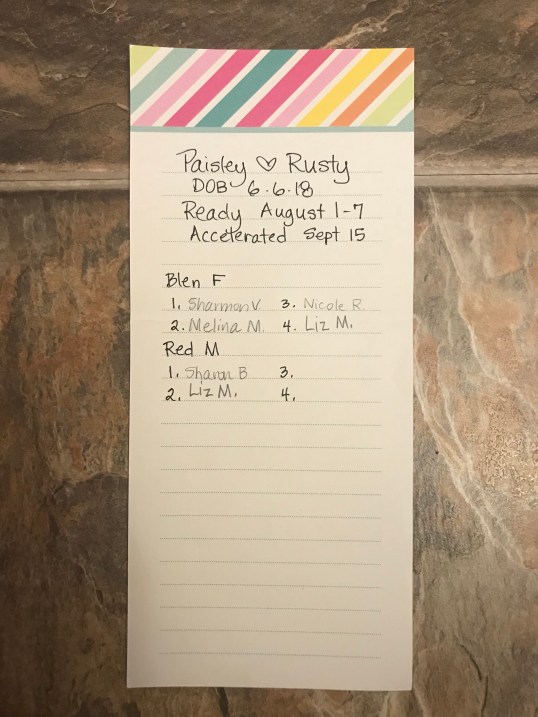 Paisley ♡ Rusty
DOB 6.6.18
Ready August 1-7
Accelerated Sept 15
Blen F
1. Sharmon V. 3. Nicole R.
2. Melina M. 4. Liz M.
Red M
1. Sharon B 3.
2. Liz M. 4.